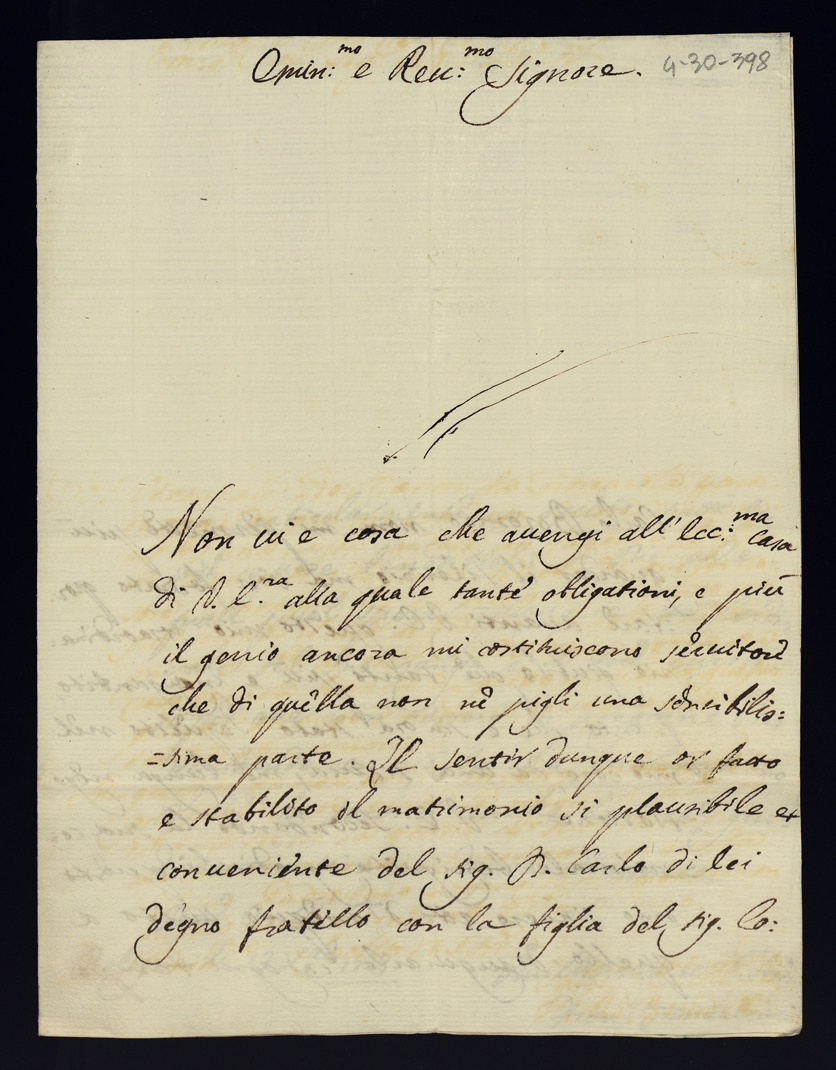 Emin:mo e Reu:mo Signore. 4-30-398
Non ui e cosa che auengi all'Ecc:ma Casa
di V. E.ra alla quale tante obligationi, e più
il genio ancora mi costituiscono seruitore
che di quella non ne pigli una sensibilis:
=sima parte. Il sentir dunque or fatto
e stabilito il matrimonio si plausibile et
conueniente del sig. D. Carlo di lei
degno fratello con la figlia del sig. Co: